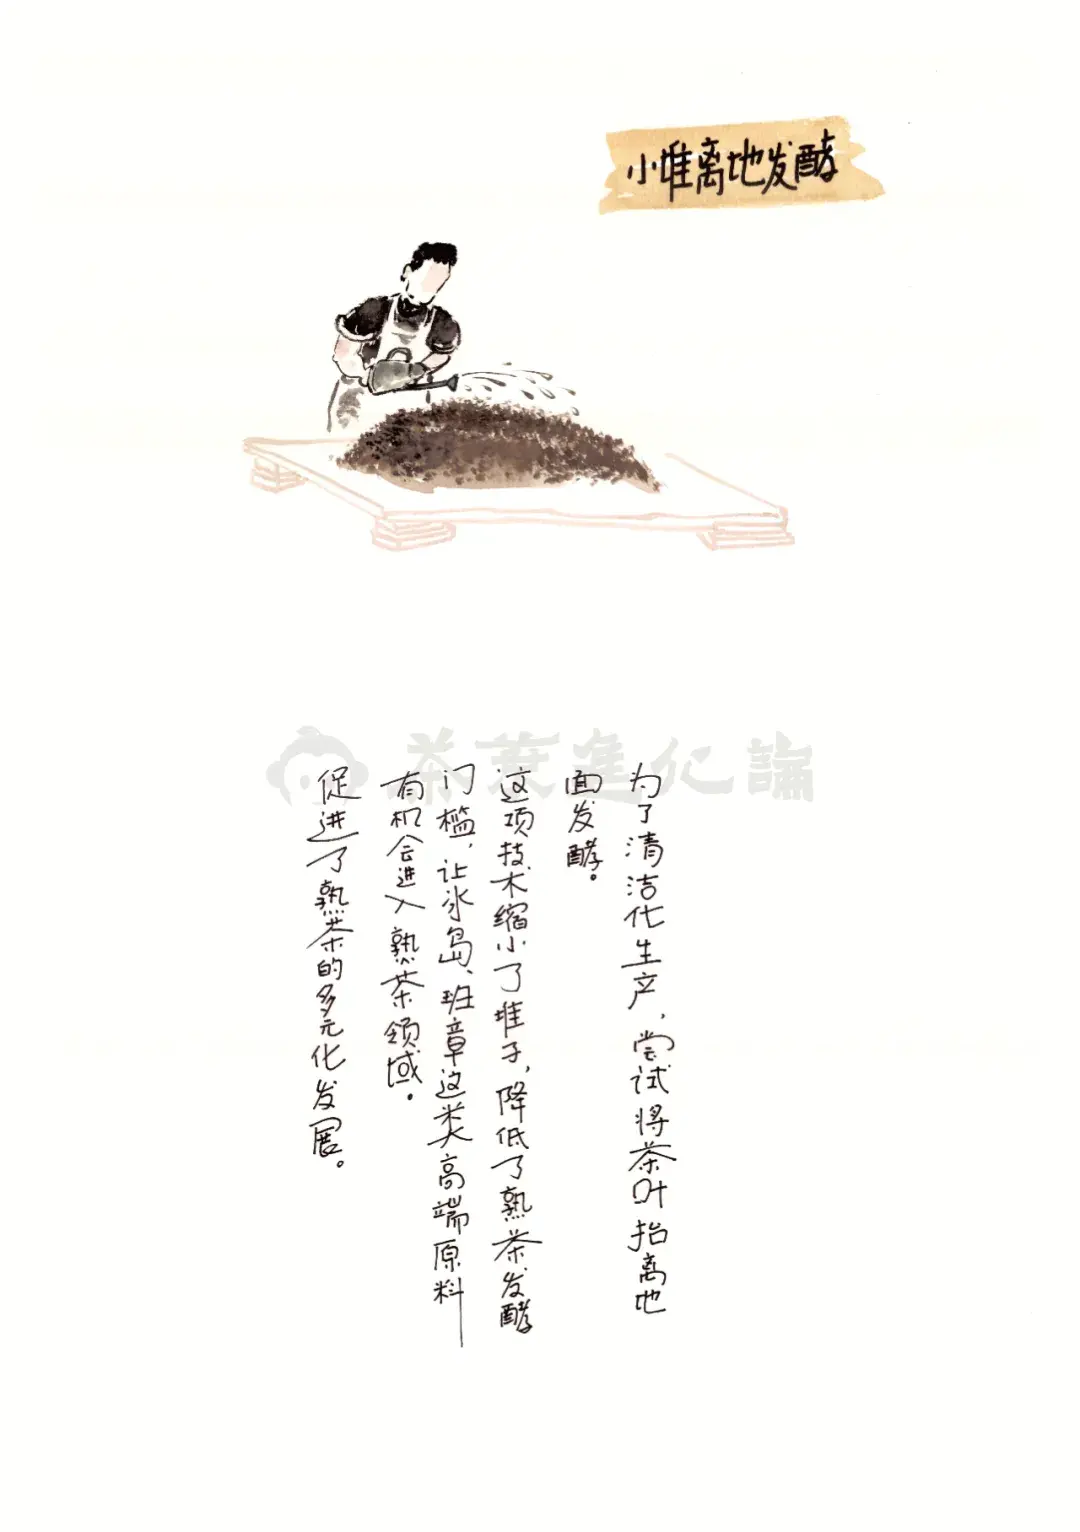 小堆离地发酵
为了清洁化生产，尝试将茶叶抬离地
面发酵。
这项技术缩小了堆子，降低了熟茶发酵
门槛，让冰岛、班章这类高端原料
有机会进入熟茶领域。
促进了熟茶的多元化发展。
茶葉進化論